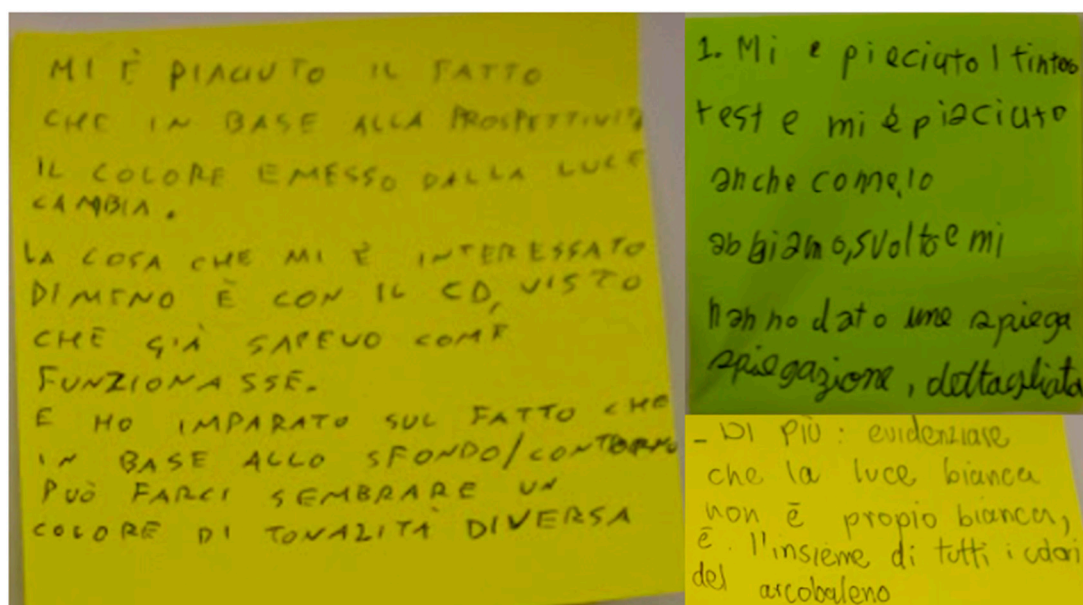 MI È PIACIUTO IL FATTO
CHE IN BASE ALLA PROSPETTIVITÀ
IL COLORE EMESSO DALLA LUCE
CAMBIA.
LA COSA CHE MI È INTERESSATO
DI MENO È CON IL CD, VISTO
CHE GIÀ SAPEVO COME
FUNZIONASSE.
E HO IMPARATO SUL FATTO CHE
IN BASE ALLO SFONDO/CONTORNO
PUÒ FARCI SEMBRARE UN
COLORE DI TONALITÀ DIVERSA
1. Mi e piaciuto l tintos
test e mi è piaciuto
anche come, lo
abbiamo, svolto e mi
hanno dato una spiega
spiegazione, dettagliata
- DI PIÙ: evidenziare
che la luce bianca
non è propio bianca,
è l'insieme di tutti i colori
del arcobaleno